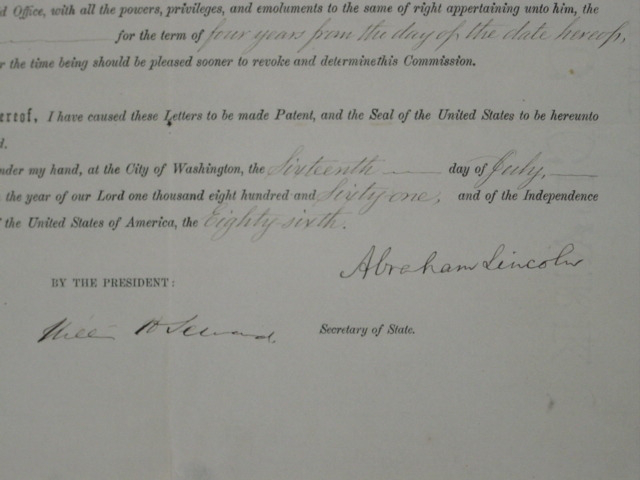 d Office, with all the powers, privileges, and emoluments to the same of right appertaining unto him, the
for the term of four years from the day of the date hereof,
r the time being should be pleased sooner to revoke and determine this Commission.
ereof, I have caused these Letters to be made Patent, and the Seal of the United States to be hereunto
d.
nder my hand, at the City of Washington, the Sixteenth day of July,
the year of our Lord one thousand eight hundred and Sixty one, and of the Independence
f the United States of America, the Eighty sixth.
Abraham Lincoln
BY THE PRESIDENT:
William H Seward, Secretary of State.